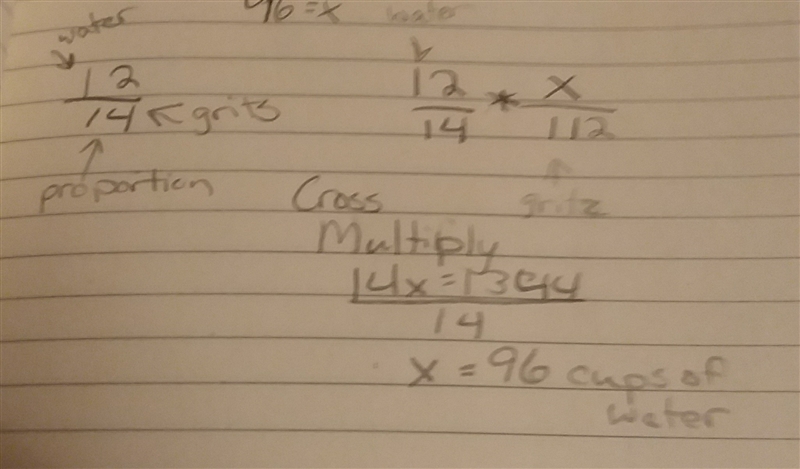 96 = x
water
water
12
14 grits
proportion
12 * x
14 112
grits
Cross
Multiply
14x = 1344
14
x = 96 cups of
water